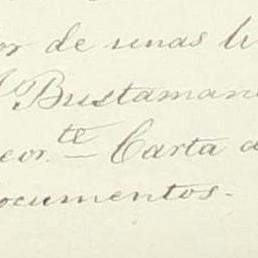 or de unas
Bustaman
eor.te - Carta d
ocumentos.-